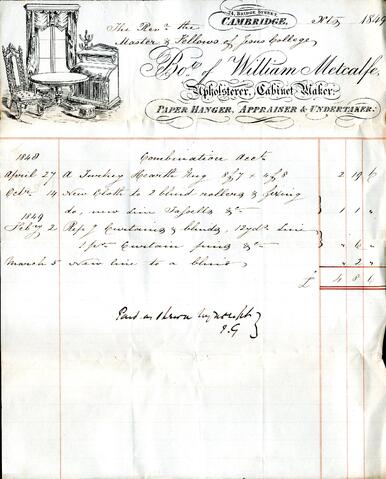 BRIDGE STREET,
CAMBRIDGE, 1849
The Revd. the
Master & Fellows of Jesus College
Bot. of William Metcalfe,
Upholsterer, Cabinet Maker,
PAPER HANGER, APPRAISER & UNDERTAKER.
1848 Combination Acct.
April 27 A Turkey Hearth Rug 2 19 6
Octr. 14 New Cloth to 2 blind rollers & fixing
do, new line Tassells &c 1 1 "
1849
Feby 2 Repg Curtains & blinds, 12 yds line
Curtain pins &c " 6 "
March 5 New line to a blind " 2 "
£ 4 8 6
Paid as